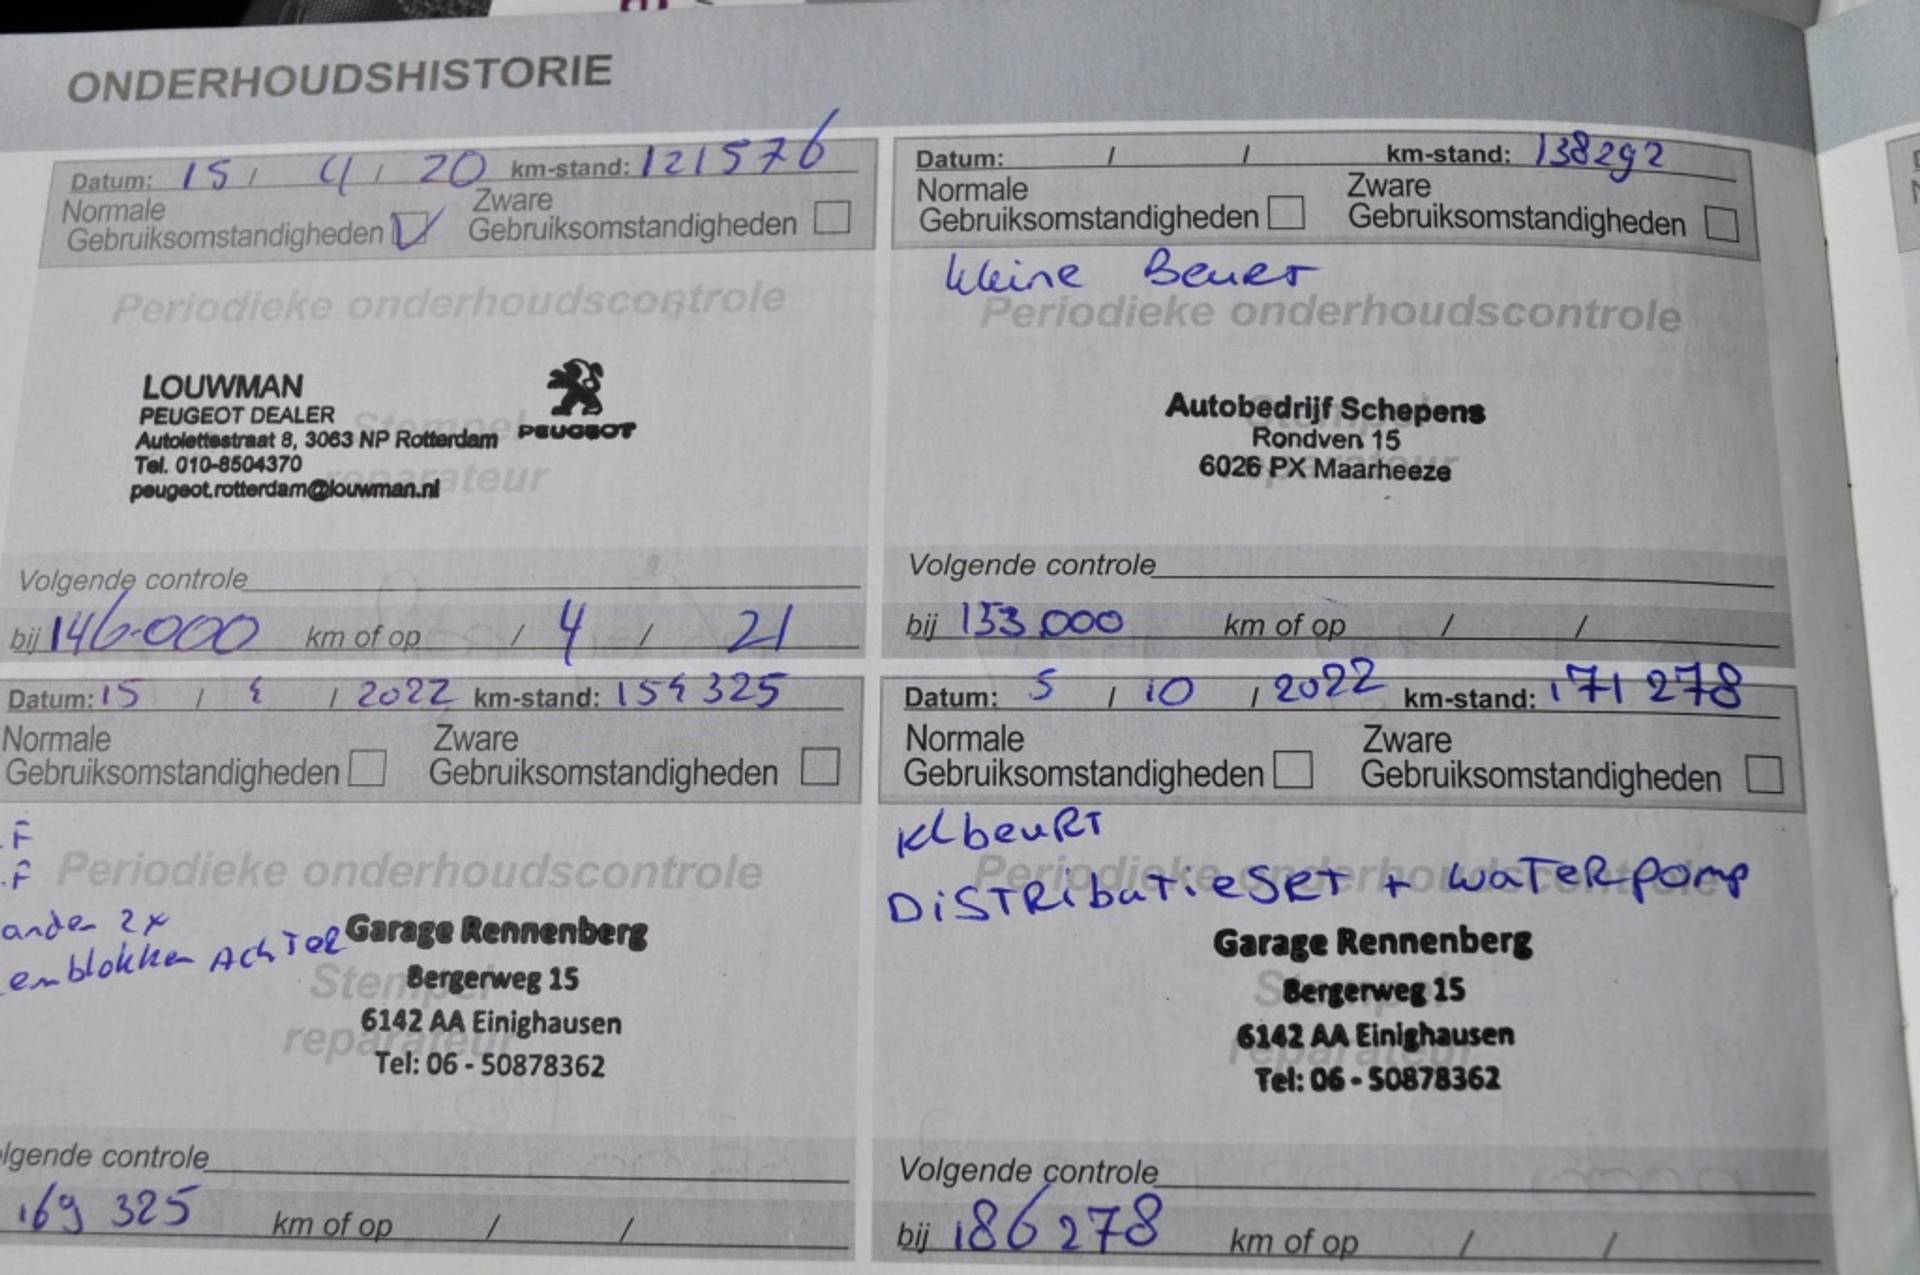 ONDERHOUDSHISTORIE
Datum: 15 / 4 / 20 km-stand: 121576
Normale Zware
Gebruiksomstandigheden Gebruiksomstandigheden
Periodieke onderhoudscontrole
LOUWMAN
PEUGEOT DEALER
Autolettestraat 8, 3063 NP Rotterdam
Tel. 010-8504370
peugeot.rotterdam@louwman.nl
PEUGEOT
Stempel
reparateur
Volgende controle
bij 146.000 km of op / 4 / 21
Datum: / / km-stand: 138292
Normale Zware
Gebruiksomstandigheden Gebruiksomstandigheden
kleine Beurt
Periodieke onderhoudscontrole
Autobedrijf Schepens
Rondven 15
6026 PX Maarheeze
Volgende controle
bij 153.000 km of op / /
Datum: 15 / / 2022 km-stand: 154325
Normale Zware
Gebruiksomstandigheden Gebruiksomstandigheden
.F
.F
Periodieke onderhoudscontrole
anden 2x
enblokken AchTeR
Garage Rennenberg
Bergerweg 15
6142 AA Einighausen
Tel: 06 - 50878362
Stempel
reparateur
lgende controle
169 325 km of op / /
Datum: 5 / 10 / 2022 km-stand: 171 278
Normale Zware
Gebruiksomstandigheden Gebruiksomstandigheden
KL beuRT
Periodieke onderhoudscontrole
DiSTRibuTieSET + waTeRpomp
Garage Rennenberg
Bergerweg 15
6142 AA Einighausen
Tel: 06 - 50878362
Volgende controle
bij 186278 km of op / /